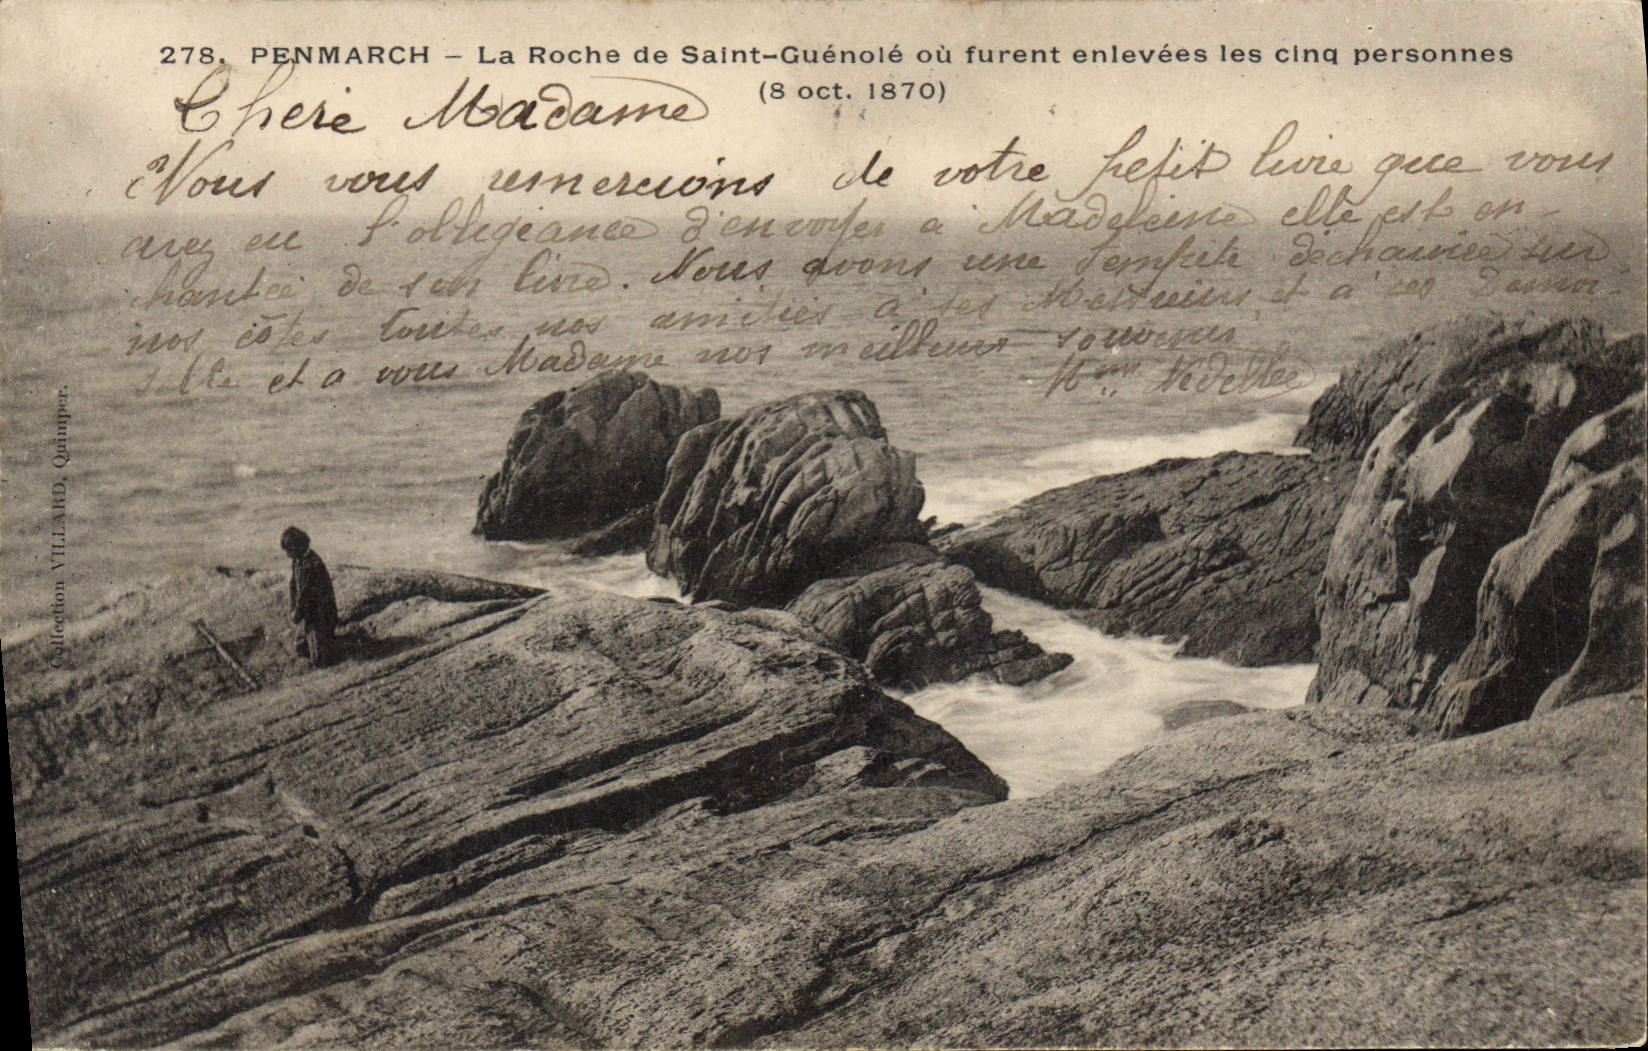 278. PENMARCH – La Roche de Saint-Guénolé où furent enlevées les cinq personnes
(8 oct. 1870)
Cherè Madame
Nous vous remercions de votre petit livre que vous
avez eu l'obligeance d'envoyer a Madeleine elle est en-
chantée de son livre. Nous avons une tempête dechainée sur
nos côtes toutes nos amitiés à ses Messieurs et a ces Demoi-
selle et a vous Madame nos meilleurs souvenirs
Mme Nedellec
Collection VILLARD, Quimper.